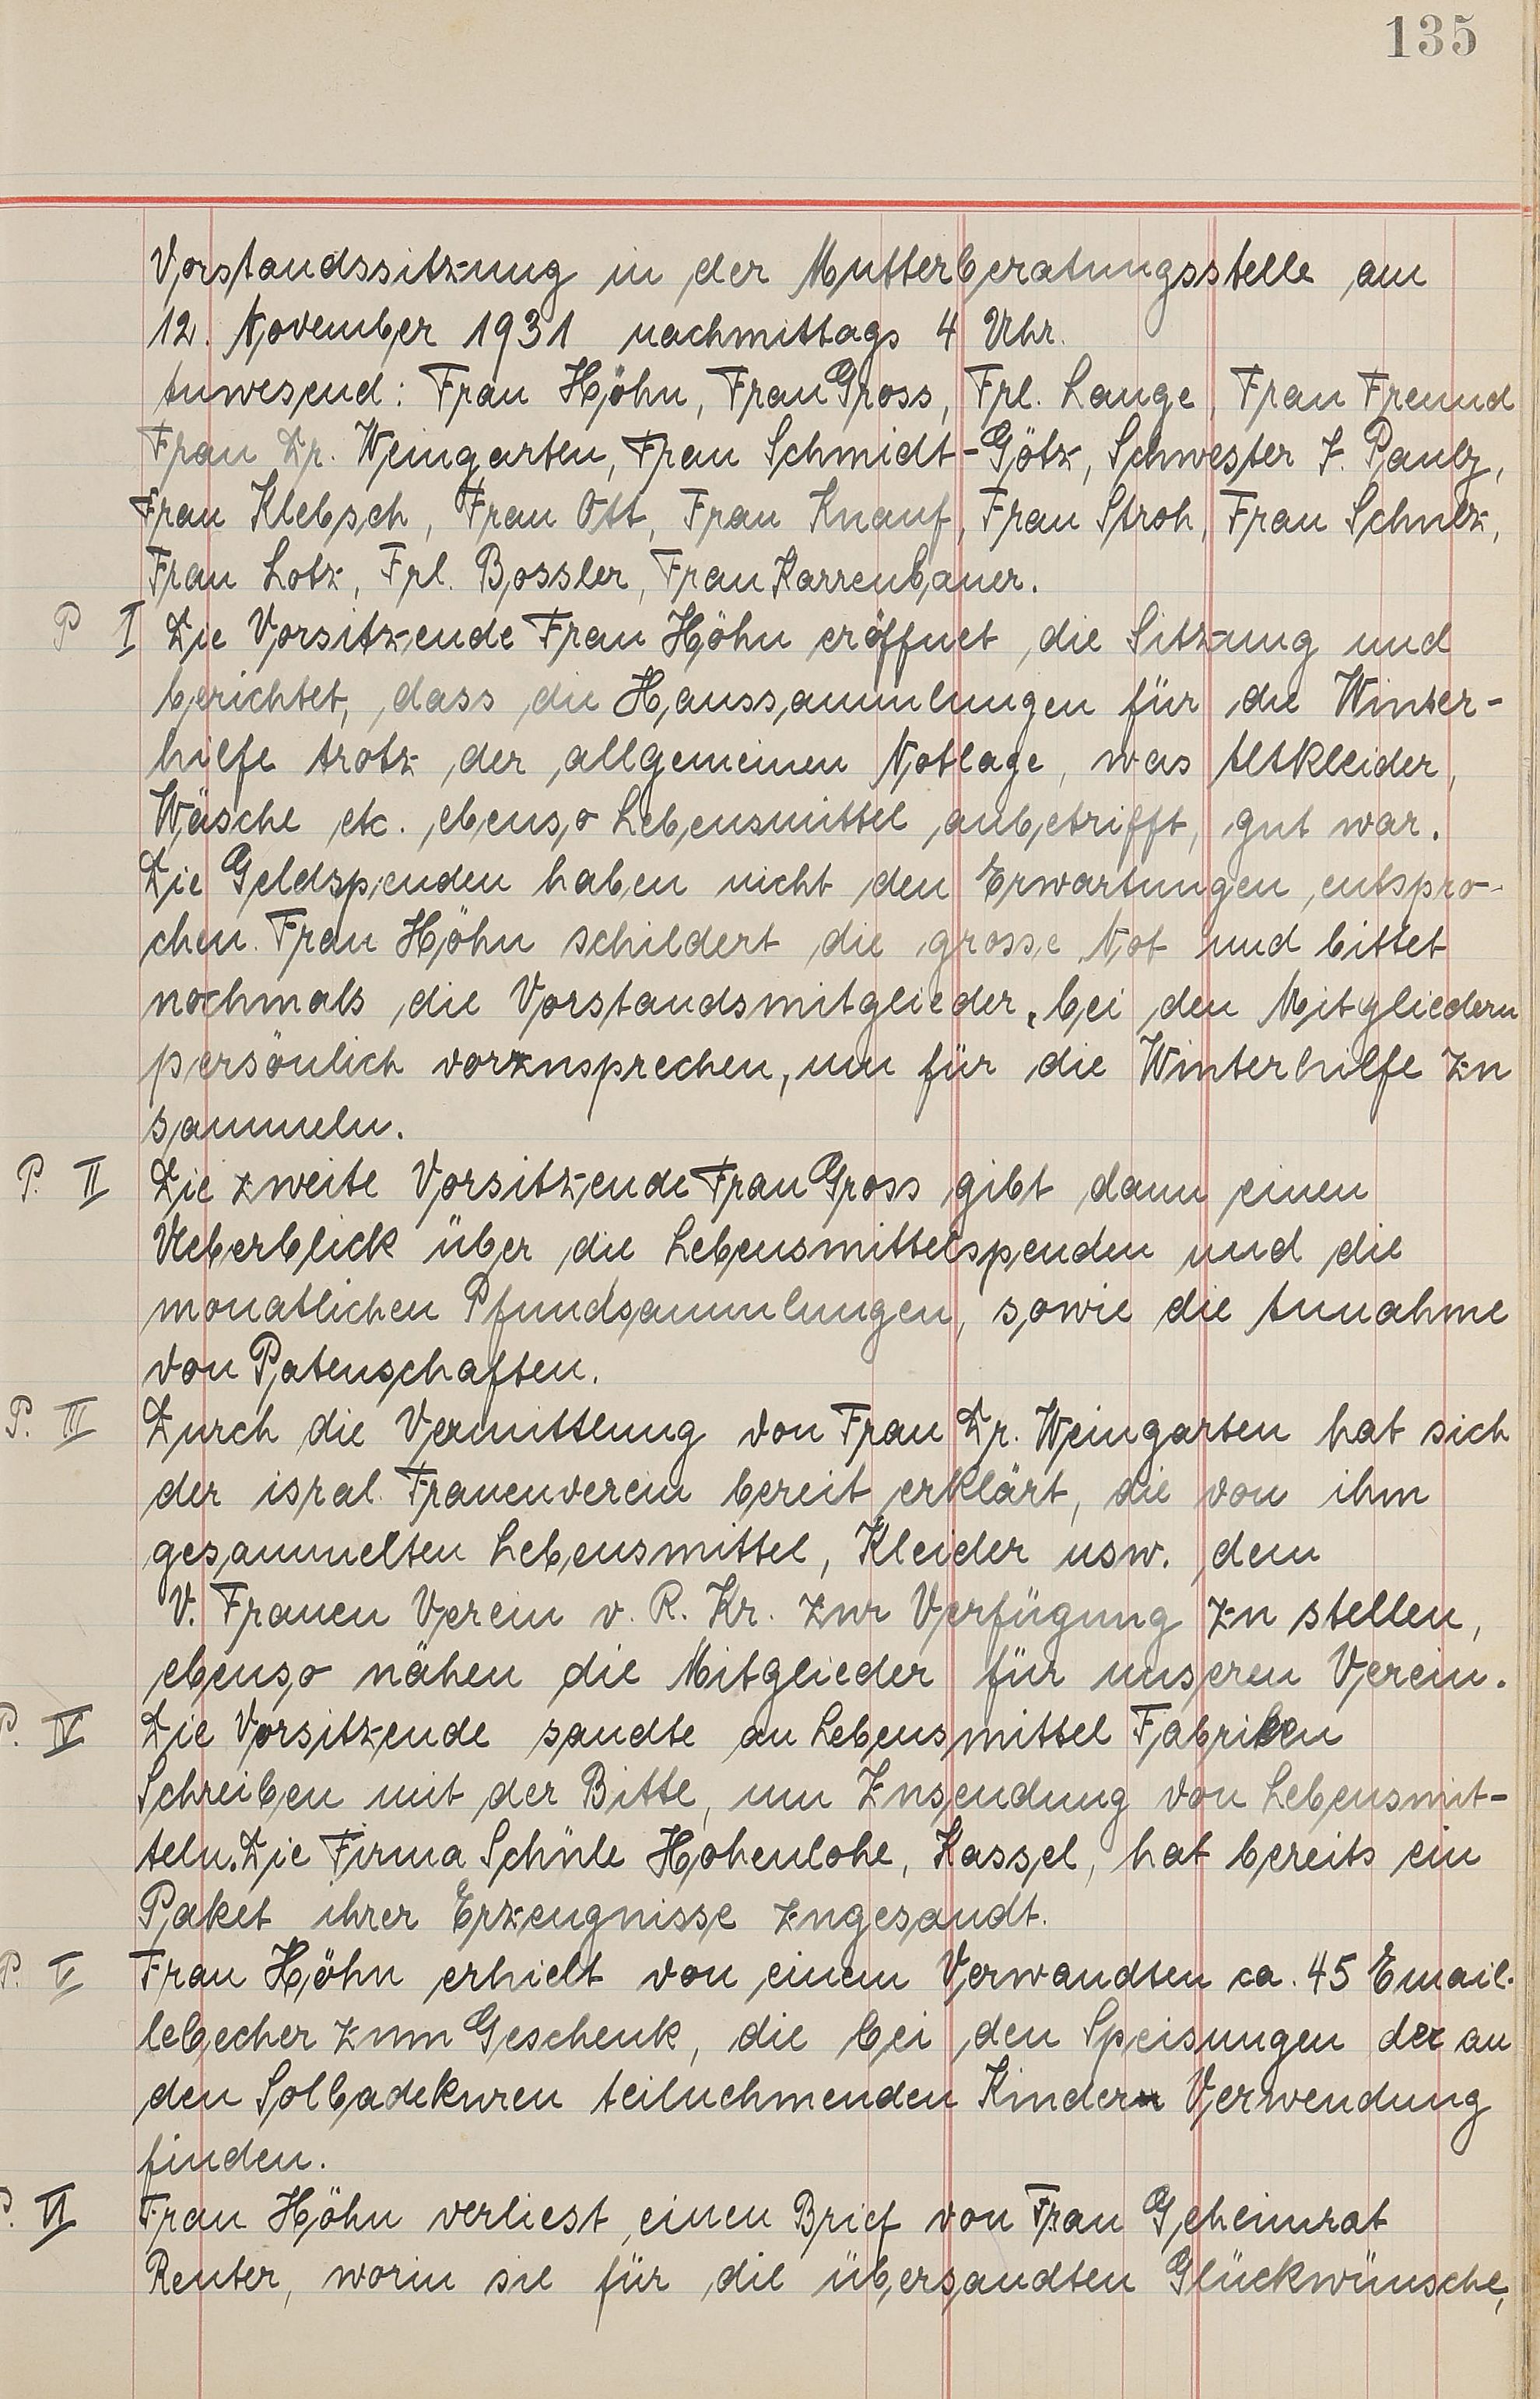 135
Vorstandssitzung in der Mutterberatungsstelle am
12. November 1931 nachmittags 4 Uhr.
Anwesend: Frau Höhn, Frau Gross, Frl. Lange, Frau Freund
Frau Dr. Weingarten, Frau Schmidt-Götz, Schwester J. Pauly,
Frau Klebsch, Frau Ott, Frau Knauf, Frau Stroh, Frau Schulz,
Frau Lotz, Frl. Bossler, Frau Karrenbauer.
P I Die Vorsitzende Frau Höhn eröffnet die Sitzung und
berichtet, dass die Haussammlungen für die Winter-
hilfe trotz der allgemeinen Notlage, was Altkleider,
Wäsche etc. ebenso Lebensmittel anbetrifft, gut war.
Die Geldspenden haben nicht den Erwartungen entspro-
chen. Frau Höhn schildert die grosse Not und bittet
nochmals die Vorstandsmitglieder, bei den Mitgliedern
persönlich vorzusprechen, um für die Winterhilfe zu
sammeln.
P. II Die zweite Vorsitzende Frau Gross gibt dann einen
Ueberblick über die Lebensmittelspenden und die
monatlichen Pfundsammlungen, sowie die Annahme
von Patenschaften.
P. III Durch die Vermittlung von Frau Dr. Weingarten hat sich
der isral. Frauenverein bereit erklärt, die von ihm
gesammelten Lebensmittel, Kleider usw. dem
V. Frauen Verein v. R. Kr. zur Verfügung zu stellen,
ebenso nähen die Mitglieder für unseren Verein.
P. IV Die Vorsitzende sandte an Lebensmittel Fabriken
Schreiben mit der Bitte, um Zusendung von Lebensmit-
teln. Die Firma Schüle Hohenlohe, Kassel, hat bereits ein
Paket ihrer Erzeugnisse zugesandt.
P. V Frau Höhn erhielt von einem Verwandten ca. 45 Email-
lebecher zum Geschenk, die bei den Speisungen der an
den Solbadekuren teilnehmenden Kinder Verwendung
finden.
P. VI Frau Höhn verliest einen Brief von Frau Geheimrat
Reuter, worin sie für die übersandten Glückwünsche,